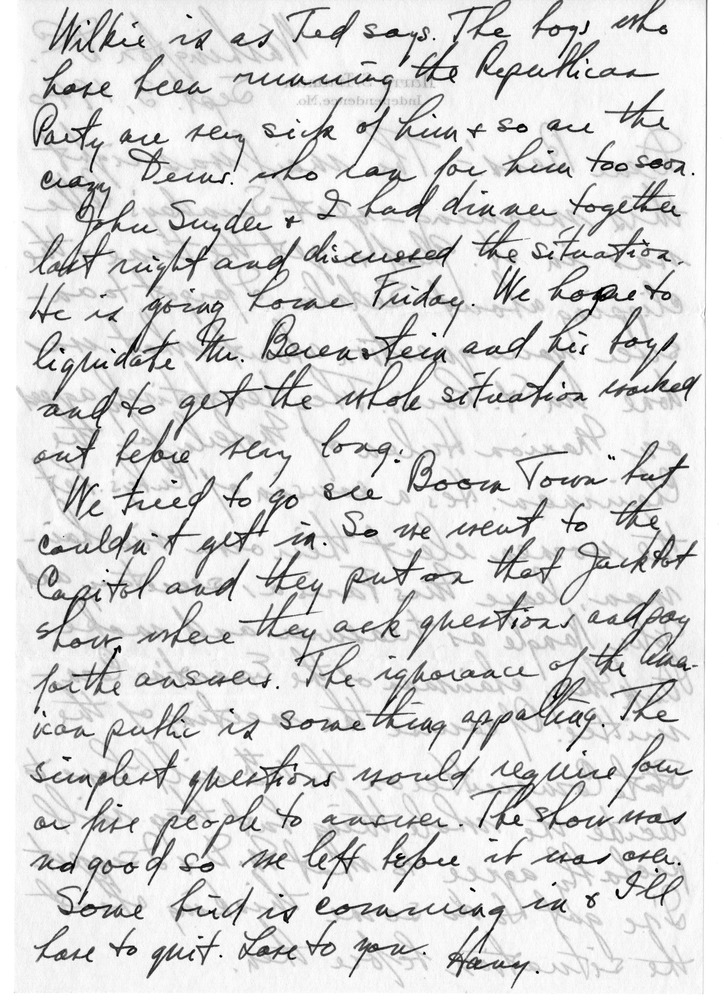 Wilkie is as Ted says. The boys who
have been running the Republican
Party are very sick of him & so are the
crazy Dems. who ran for him too soon.
John Snyder & I had dinner together
last night and discussed the situation.
He is going home Friday. We hope to
liquidate Mr. Berenstein and his boys
and to get the whole situation worked
out before very long.
We tried to go see "Boom Town" but
couldn't get in. So we went to the
Capitol and they put on that Jackpot
show where they ask questions and pay
for the answers. The ignorance of the Amer-
ican public is something appalling. The
simplest questions would require four
or five people to answer. The show was
no good so we left before it was over.
Some bird is comming in & I'll
have to quit. Love to you. Harry.